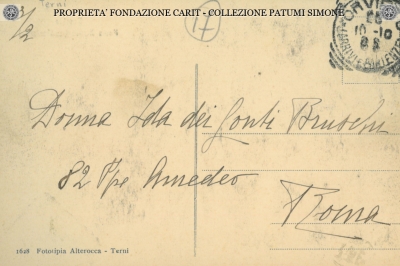 Terni
PROPRIETA' FONDAZIONE CARIT - COLLEZIONE PATUMI SIMONE
3/2
17
ORVI
10-10
Donna Ida dei Conti Bruschi
82 Ppe Amedeo
Roma
1828 Fotocipia Alterocca - Terni